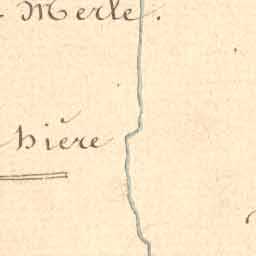 Merle.
bière